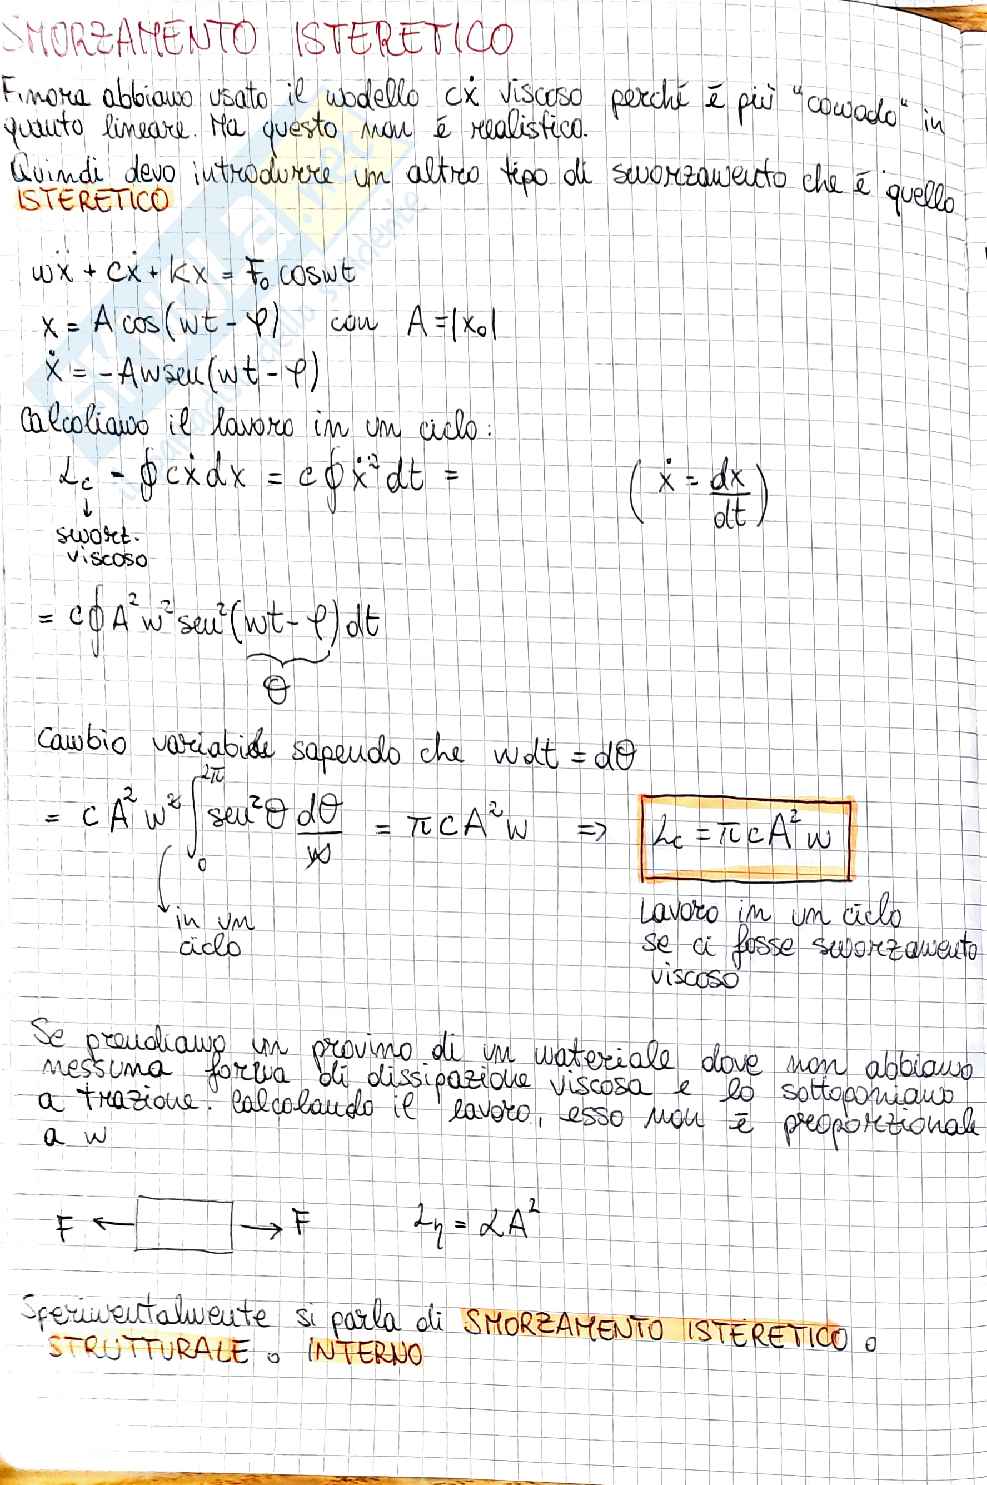 SMORZAMENTO ISTERETICO
Finora abbiamo usato il modello cẋ viscoso perché è più "comodo" in
quanto lineare. Ma questo non è realistico.
Quindi devo introdurre un altro tipo di smorzamento che è quello
ISTERETICO
mẍ + cẋ + kx = F₀ cosωt
x = A cos(ωt - φ) con A = |x₀|
ẋ = -Aωsen(ωt - φ)
Calcoliamo il lavoro in un ciclo:
Lc = ∮cẋdx = c∮ẋ²dt = (ẋ = dx/dt)
↓
smorz.
viscoso
= c∮A²ω²sen²(ωt - φ)dt
θ
Cambio variabile sapendo che ωdt = dθ
= cA²ω² ∫₀^2π sen²θ dθ/ω = πcA²ω => Lc = πcA²ω
in un
ciclo
Lavoro in un ciclo
se ci fosse smorzamento
viscoso
Se prendiamo un provino di un materiale dove non abbiamo
nessuna forma di dissipazione viscosa e lo sottoponiamo
a trazione. Calcolando il lavoro, esso non è proporzionale
a ω
F ← → F Lη = αA²
Sperimentalmente si parla di SMORZAMENTO ISTERETICO o
STRUTTURALE o INTERNO